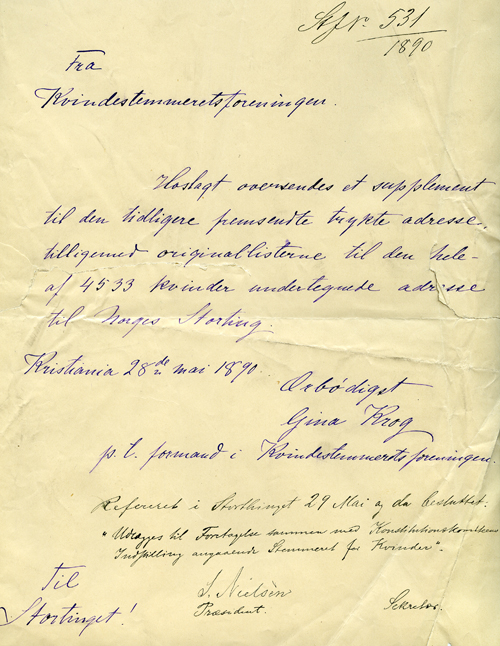 Stf No. 531
1890
Fra
Kvindestemmeretsforeningen.
Hoslagt oversendes et supplement
til den tidligere fremsendte trykte adresse,
tilligemed originallisterne til den hele
af 4533 kvinder undertegnede adresse
til Norges Storting.
Kristiania 28de mai 1890.
Ærbödigst
Gina Krog
p.t. formand i Kvindestemmeretsforeningen.
Refereret i Storthinget 29 Mai og da besluttet:
"Udlægges til Foretagelse sammen med Konstitutionskomiteens
Indstilling angaaende Stemmeret for Kvinder".
S. Nielsen
Præsident.
Sekretær.
Til
Stortinget!